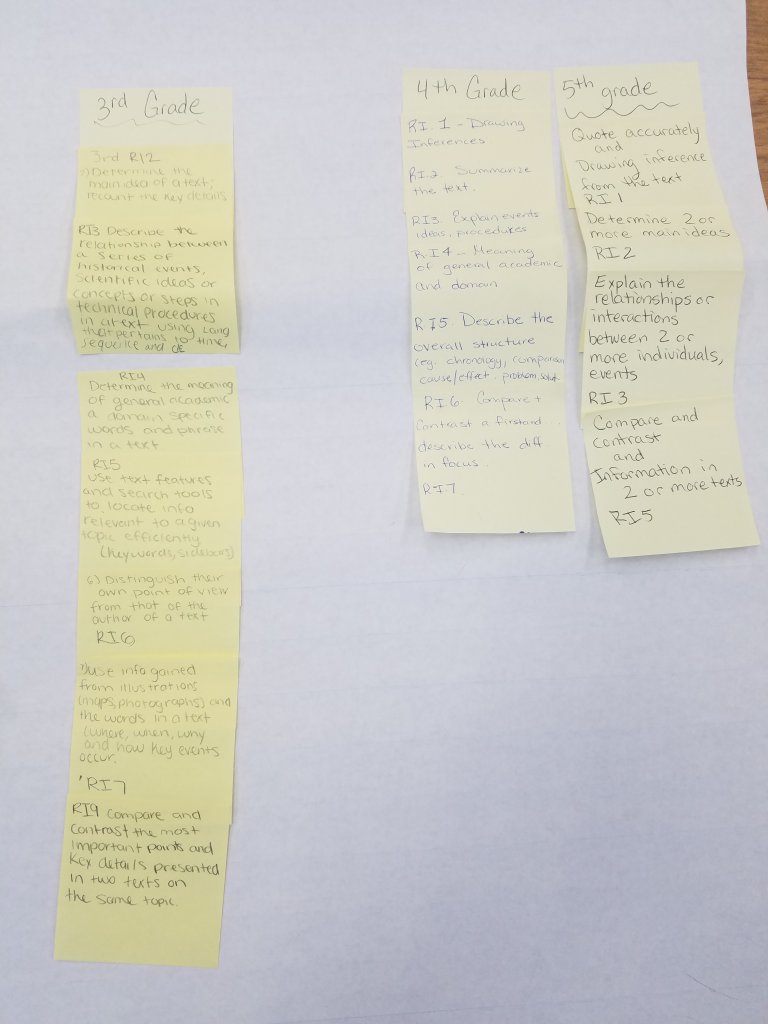 3rd Grade
3rd RI2
Determine the
main idea of a text;
recount the key details
RI3 Describe the
relationship between
a series of
historical events,
scientific ideas or
concepts or steps in
technical procedures
in a text using Lang
that pertains to time,
sequence and
RI4
Determine the meaning
of general academic
a domain specific
words and phrase
in a text
RI5
use text features
and search tools
to locate info
relevant to a given
topic efficiently
(keywords, sidebars)
6) Distinguish their
own point of view
from that of the
author of a text
RI6
7) use info gained
from illustrations
(maps, photographs) and
the words in a text
(where, when, why
and how key events
occur.
RI7
RI9 Compare and
contrast the most
important points and
key details presented
in two texts on
the same topic.
4th Grade
RI.1 - Drawing
Inferences
RI.2. Summarize
the text.
RI3. Explain events
ideas, procedures
RI4 - Meaning
of general academic
and domain
RI5. Describe the
overall structure
(eg. chronology, comparison
cause/effect. problem, solut.
RI6. Compare +
Contrast a firstand...
describe the diff.
in focus..
RI7.
5th grade
Quote accurately
and
Drawing inference
from the text
RI1
Determine 2 or
more main ideas
RI2
Explain the
relationships or
interactions
between 2 or
more individuals,
events
RI3
Compare and
contrast
and
Information in
2 or more texts
RI5